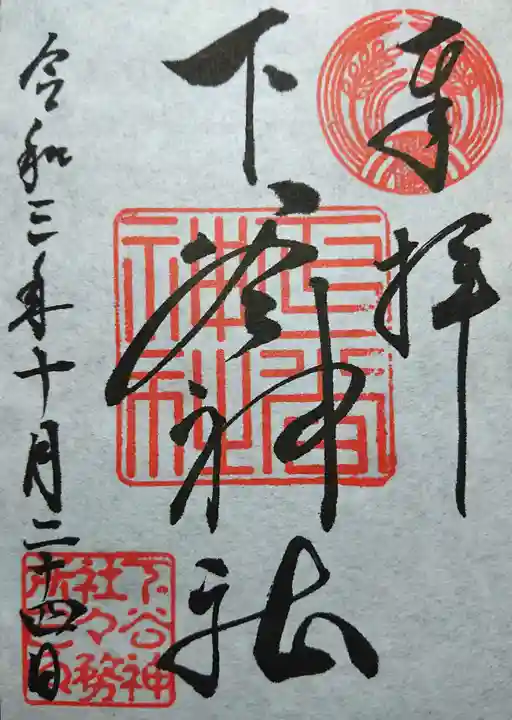 奉拝
下谷神社
令和三年十月二十四日
下谷
神社
下谷神
社々務
所之印